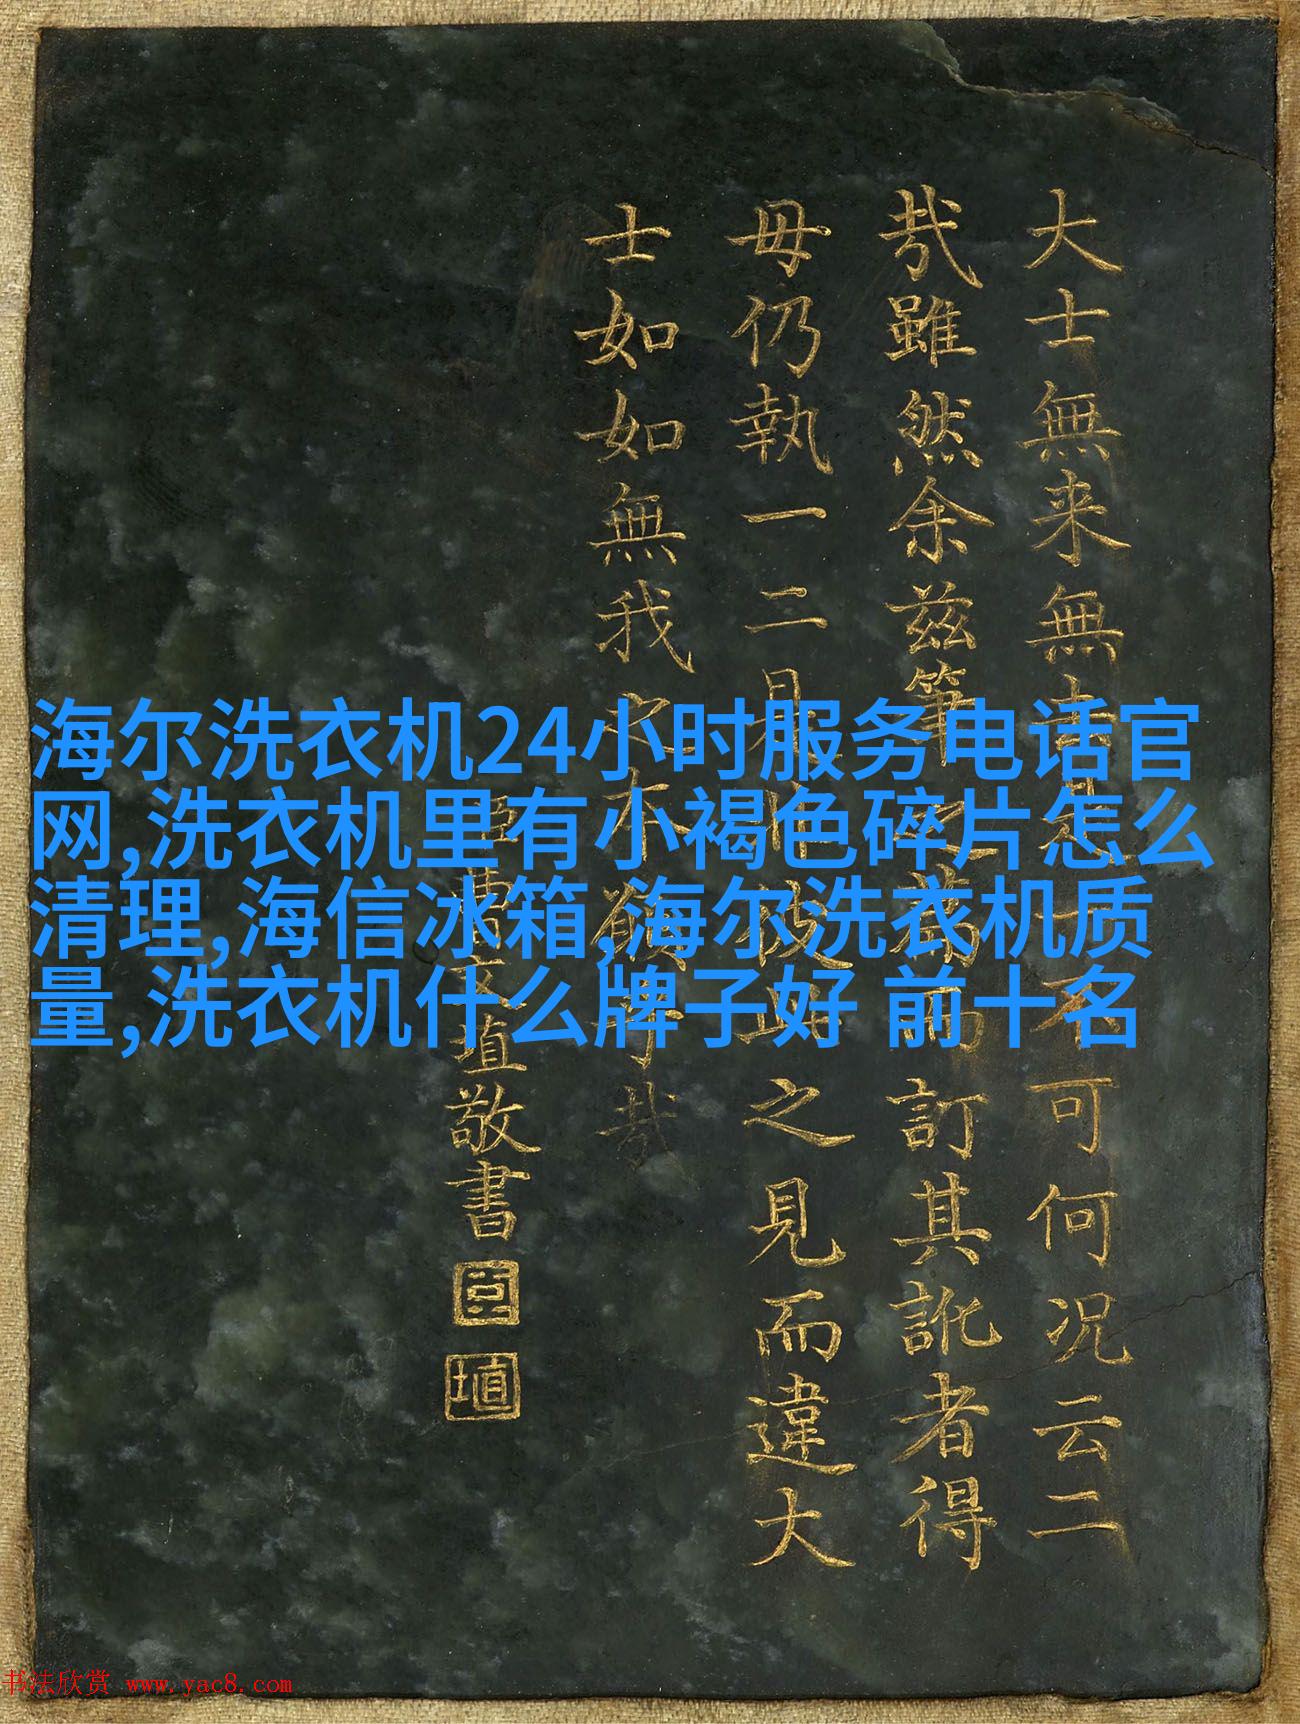 大士無来無去
可何況云二
㢤雖然余兹筆
訂其訛者得
毋仍執一二
之見而違大
士如如無我
敬書
海尔洗衣机24小时服务电话官
网,洗衣机里有小褐色碎片怎么
清理,海信冰箱,海尔洗衣机质
量,洗衣机什么牌子好 前十名
书法欣赏 www.yac8.com